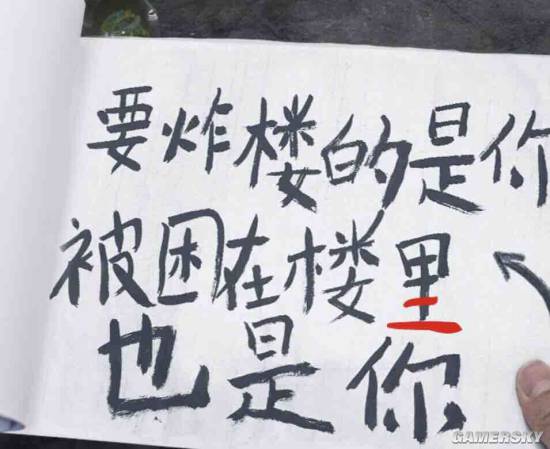 要炸楼的是你
被困在楼里
也是你
GAMERSKY